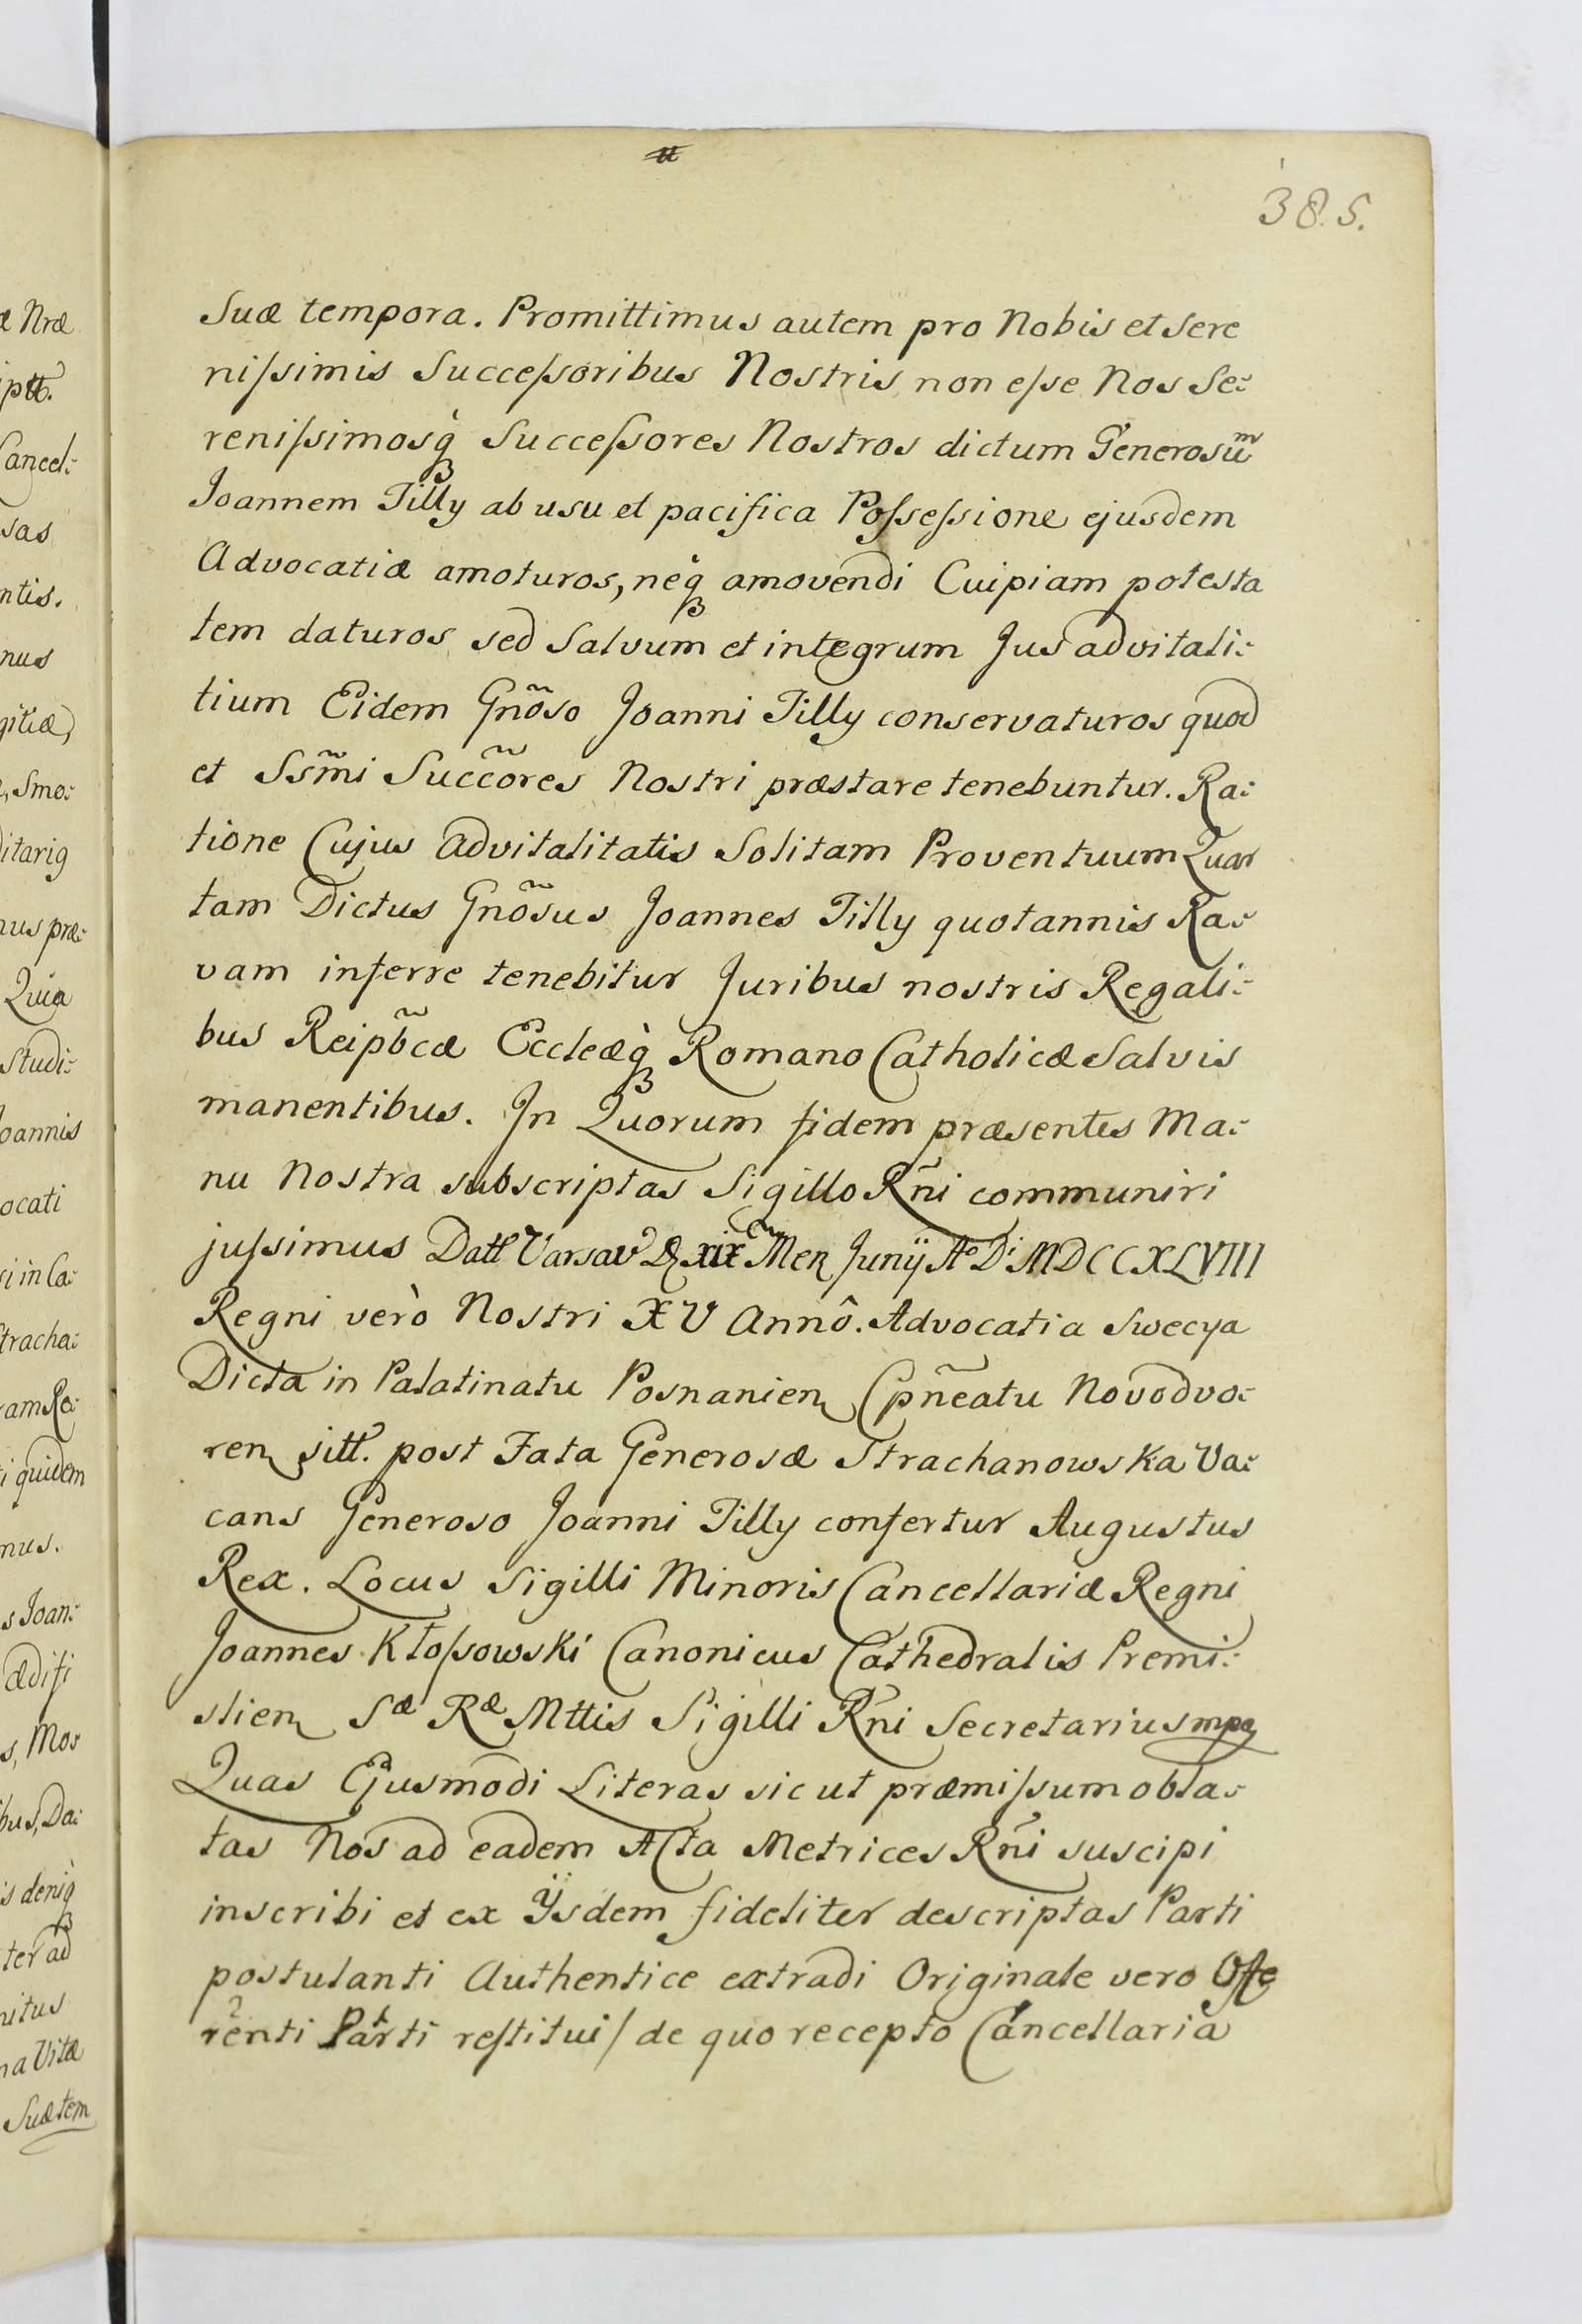 385.
Suæ tempora. Promittimus autem pro Nobis et Sere
niſsimis Succeſsoribus Nostris non eſse Nos Se:
reniſsimosq̀ꝫ Succeſsores Nostros dictum Generosūm
Joannem Tilly ab usu et pacifica Poſseſsione ejusdem
Advocatiæ amoturos, neq̀ꝫ amovendi Cuipiam potesta
tem daturos sed Salvum et integrum Jus advitali:
tium Eidem Gnõso Joanni Tilly conservaturos quod
et Ssm̃i Succc̃ores Nostri præstare tenebuntur. Ra:
tione Cujus Advitalitatis Solitam Proventuum Quar
tam Dictus Gnõsus Joannes Tilly quotannis Ra:
vam inferre tenebitur Juribus nostris Regali:
bus Reipb̃cæ Eccleæq̀ꝫ Romano Catholicæ Salvis
manentibus. In Quorum fidem præsentes Ma:
nu Nostra subscriptas Sigillo Rñi communiri
juſsimus Datt Varsav D. XIX Men Junÿ Aº Di MDCCXLVIII
Regni verò Nostri XV Annô. Advocatia Swecya
Dicta in Palatinatu Posnanien Cpñeatu Novodvo:
ren sitt. post Fata Generosæ Strachanowska Va:
cans Generoso Joanni Tilly confertur Augustus
Rex. Locus Sigilli Minoris Cancellariæ Regni
Joannes Kłoſsowski Canonicus Cathedralis Premi:
slien Sæ Ræ Mttis Sigilli Rñi Secretarius mpa
Quas Ejusmodi Literas sic ut præmiſsum obla:
tas Nos ad eadem Acta Metrices Rñi suscipi
inscribi et ex Ÿsdem fideliter descriptas Parti
postulanti Authentice extradi Originale vero Offe
renti Parti reſtitui / de quo recepto Cancellaria